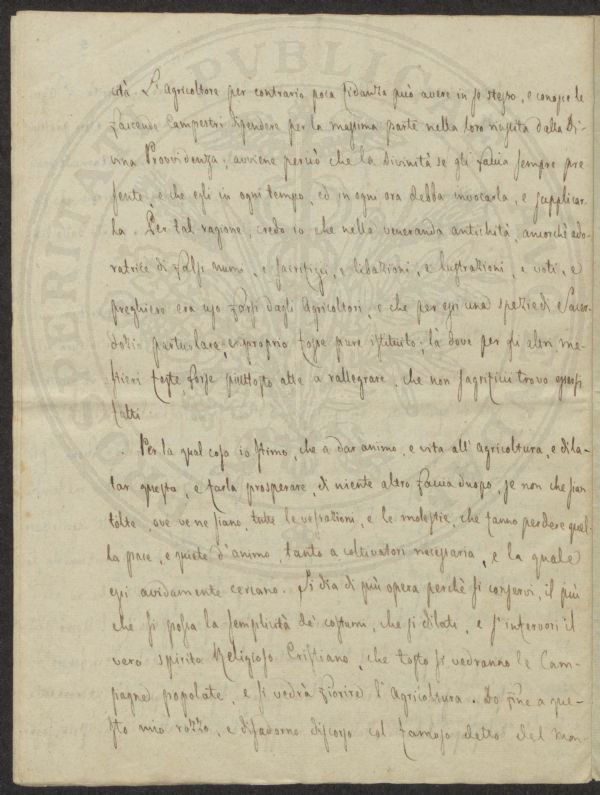 cità. L'Agricoltore per contrario poca fidanza può avere in se stesso, e conosce le
faccende Campestri dipendere per la massima parte nella loro riuscita dalla Di-
vina Provvidenza; avviene perciò che la Divinità se gli faccia sempre pre
sente, e che egli in ogni tempo, ed in ogni ora debba invocarla, e supplicar-
la. Per tal ragione, credo io che nella veneranda antichità, ancorchè ado-
ratrice di falsi numi, e sacrifizj, e libazioni, e lustrazioni, e voti, e
preghiere era uso farsi dagli Agricoltori, e che per essi una spezie di Sacer-
dozio particolare, e proprio fosse pure istituito; là dove per gli altri me-
stieri feste forse piuttosto atte a rallegrare, che non sagrifizii trovo essersi
fatti.
Per la qual cosa io stimo, che a dar animo, e vita all'agricoltura, e dila-
tar questa, e farla prosperare, di niente altro faccia duopo, se non che sian
tolte, ove ve ne siano, tutte le vessazioni, e le molestie, che fanno perdere quel-
la pace, e quiete d'animo, tanto a coltivatori necessaria, e la quale
essi avidamente cercano. Si dia di più opera perchè si conservi, il più
che si possa la semplicità de' costumi, che si dilati, e s'infervori il
vero spirito Religioso Cristiano, che tosto si vedranno le Cam-
pagne popolate, e si vedrà fiorire l'Agricoltura. Do fine a que-
sto mio rozzo, e disadorno discorso col famoso detto del Man-